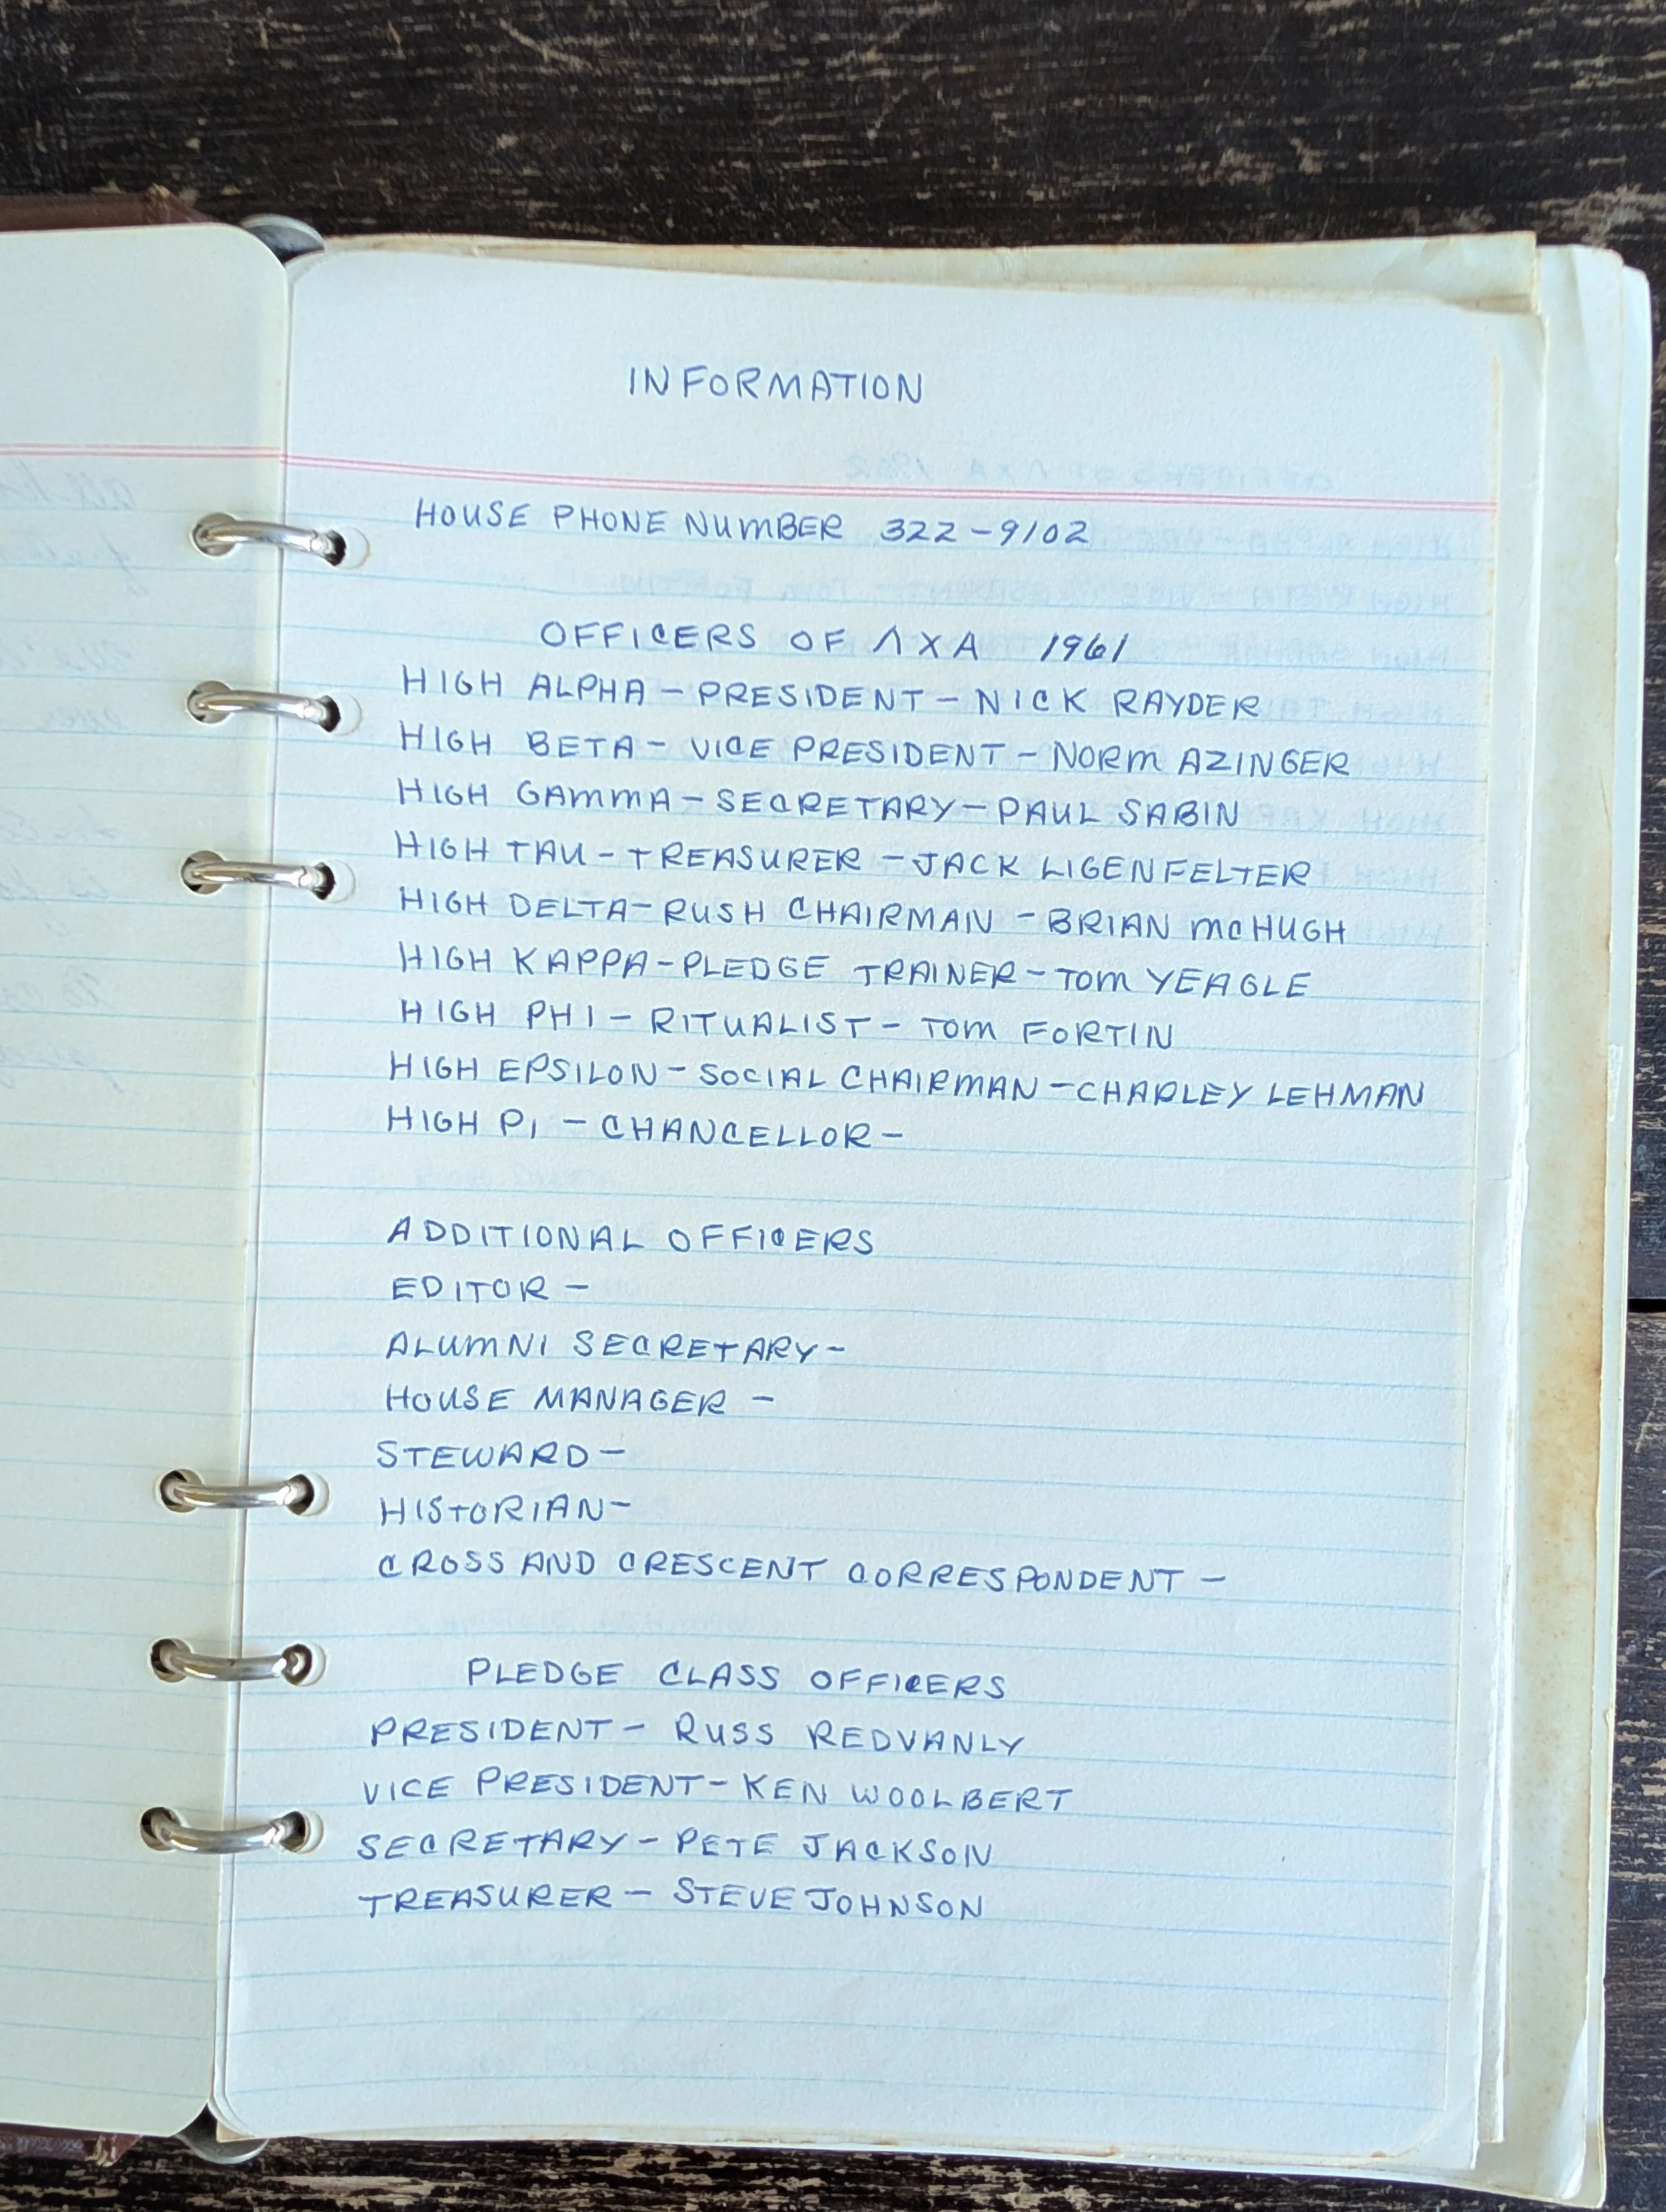 INFORMATION
HOUSE PHONE NUMBER 322-9102
OFFICERS OF ΛXA 1961
HIGH ALPHA - PRESIDENT - NICK RAYDER
HIGH BETA - VICE PRESIDENT - NORM AZINGER
HIGH GAMMA - SECRETARY - PAUL SABIN
HIGH TAU - TREASURER - JACK LIGENFELTER
HIGH DELTA - RUSH CHAIRMAN - BRIAN McHUGH
HIGH KAPPA - PLEDGE TRAINER - TOM YEAGLE
HIGH PHI - RITUALIST - TOM FORTIN
HIGH EPSILON - SOCIAL CHAIRMAN - CHARLEY LEHMAN
HIGH PI - CHANCELLOR -
ADDITIONAL OFFICERS
EDITOR -
ALUMNI SECRETARY -
HOUSE MANAGER -
STEWARD -
HISTORIAN -
CROSS AND CRESCENT CORRESPONDENT -
PLEDGE CLASS OFFICERS
PRESIDENT - RUSS REDVANLY
VICE PRESIDENT - KEN WOOLBERT
SECRETARY - PETE JACKSON
TREASURER - STEVE JOHNSON